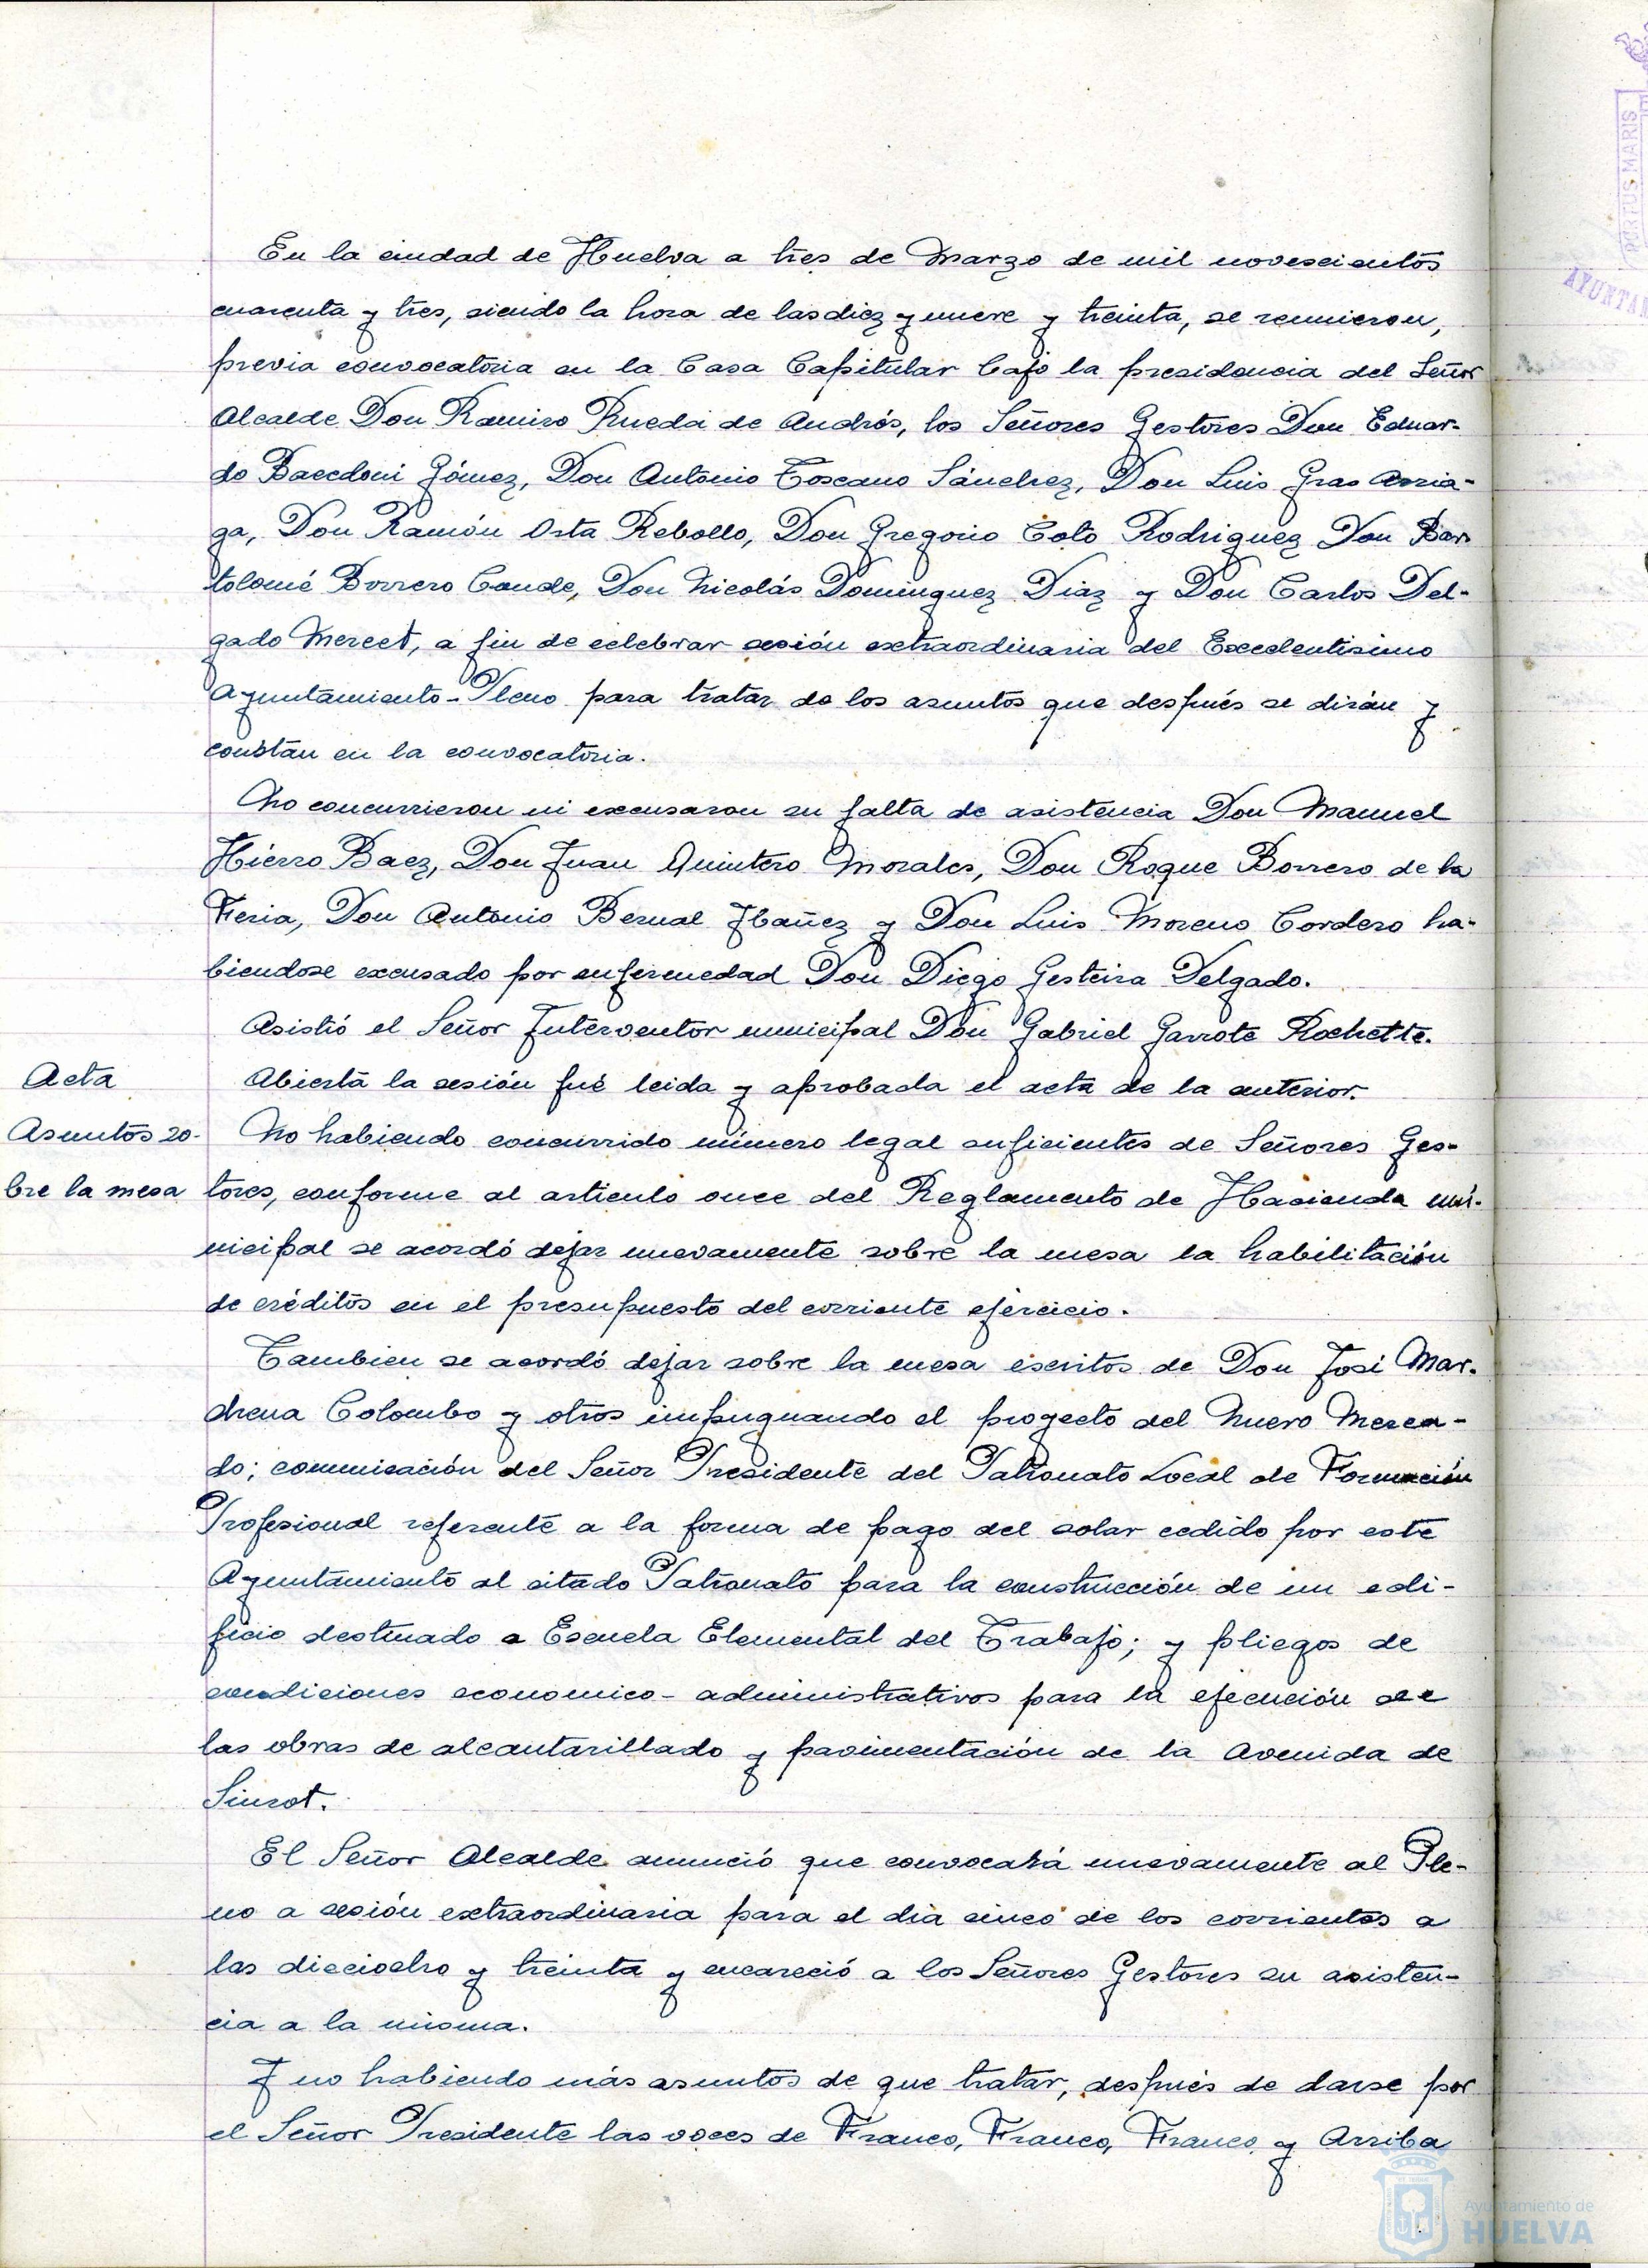 En la ciudad de Huelva a tres de Marzo de mil novescientos
cuarenta y tres, siendo la hora de las diez y nueve y treinta, se reunieron,
previa convocatoria en la Casa Capitular bajo la presidencia del Señor
Alcalde Don Ramiro Rueda de Andrés, los Señores Gestores Don Eduar-
do Baccdoni Gómez, Don Antonio Toscano Sánchez, Don Luis Gras Arria-
ga, Don Ramón Osta Rebollo, Don Gregorio Coto Rodriguez Don Bar-
tolomé Borrero Conde, Don Nicolás Dominguez Diaz y Don Carlos Del-
gado Mercet, a fin de celebrar sesión extraordinaria del Excelentisimo
Ayuntamiento-Pleno para tratar de los asuntos que después se dirán y
constan en la convocatoria.
No concurrieron ni excusaron su falta de asistencia Don Manuel
Hierro Baez, Don Juan Quintero Morales, Don Roque Borrero de la
Feria, Don Antonio Bernal Ibañez y Don Luis Moreno Cordero ha-
biendose excusado por enfermedad Don Diego Gesteira Delgado.
Asistió el Señor Interventor municipal Don Gabriel Garrote Rochette.
Acta
Abierta la sesión fué leida y aprobada el acta de la anterior.
Asuntos so-
bre la mesa
No habiendo concurrido número legal suficientes de Señores Ges-
tores, conforme al articulo once del Reglamento de Hacienda mu-
nicipal se acordó dejar nuevamente sobre la mesa la habilitación
de créditos en el presupuesto del corriente ejercicio.
Tambien se acordó dejar sobre la mesa escritos de Don José Mar-
chena Colombo y otros impugnando el proyecto del Nuevo Merca-
do; comunicación del Señor Presidente del Patronato Local de Formación
Profesional referente a la forma de pago del solar cedido por este
Ayuntamiento al citado Patronato para la construcción de un edi-
ficio destinado a Escuela Elemental del Trabajo; y pliegos de
condiciones economico-administrativos para la ejecución de
las obras de alcantarillado y pavimentación de la Avenida de
Siurot.
El Señor Alcalde anunció que convocará nuevamente al Ple-
no a sesión extraordinaria para el dia cinco de los corrientes a
las dieciocho y treinta y encareció a los Señores Gestores su asisten-
cia a la misma.
Y no habiendo más asuntos de que tratar, después de darse por
el Señor Presidente las voces de Franco, Franco, Franco y Arriba
PORTUS MARIS
Ayuntamiento de
HUELVA